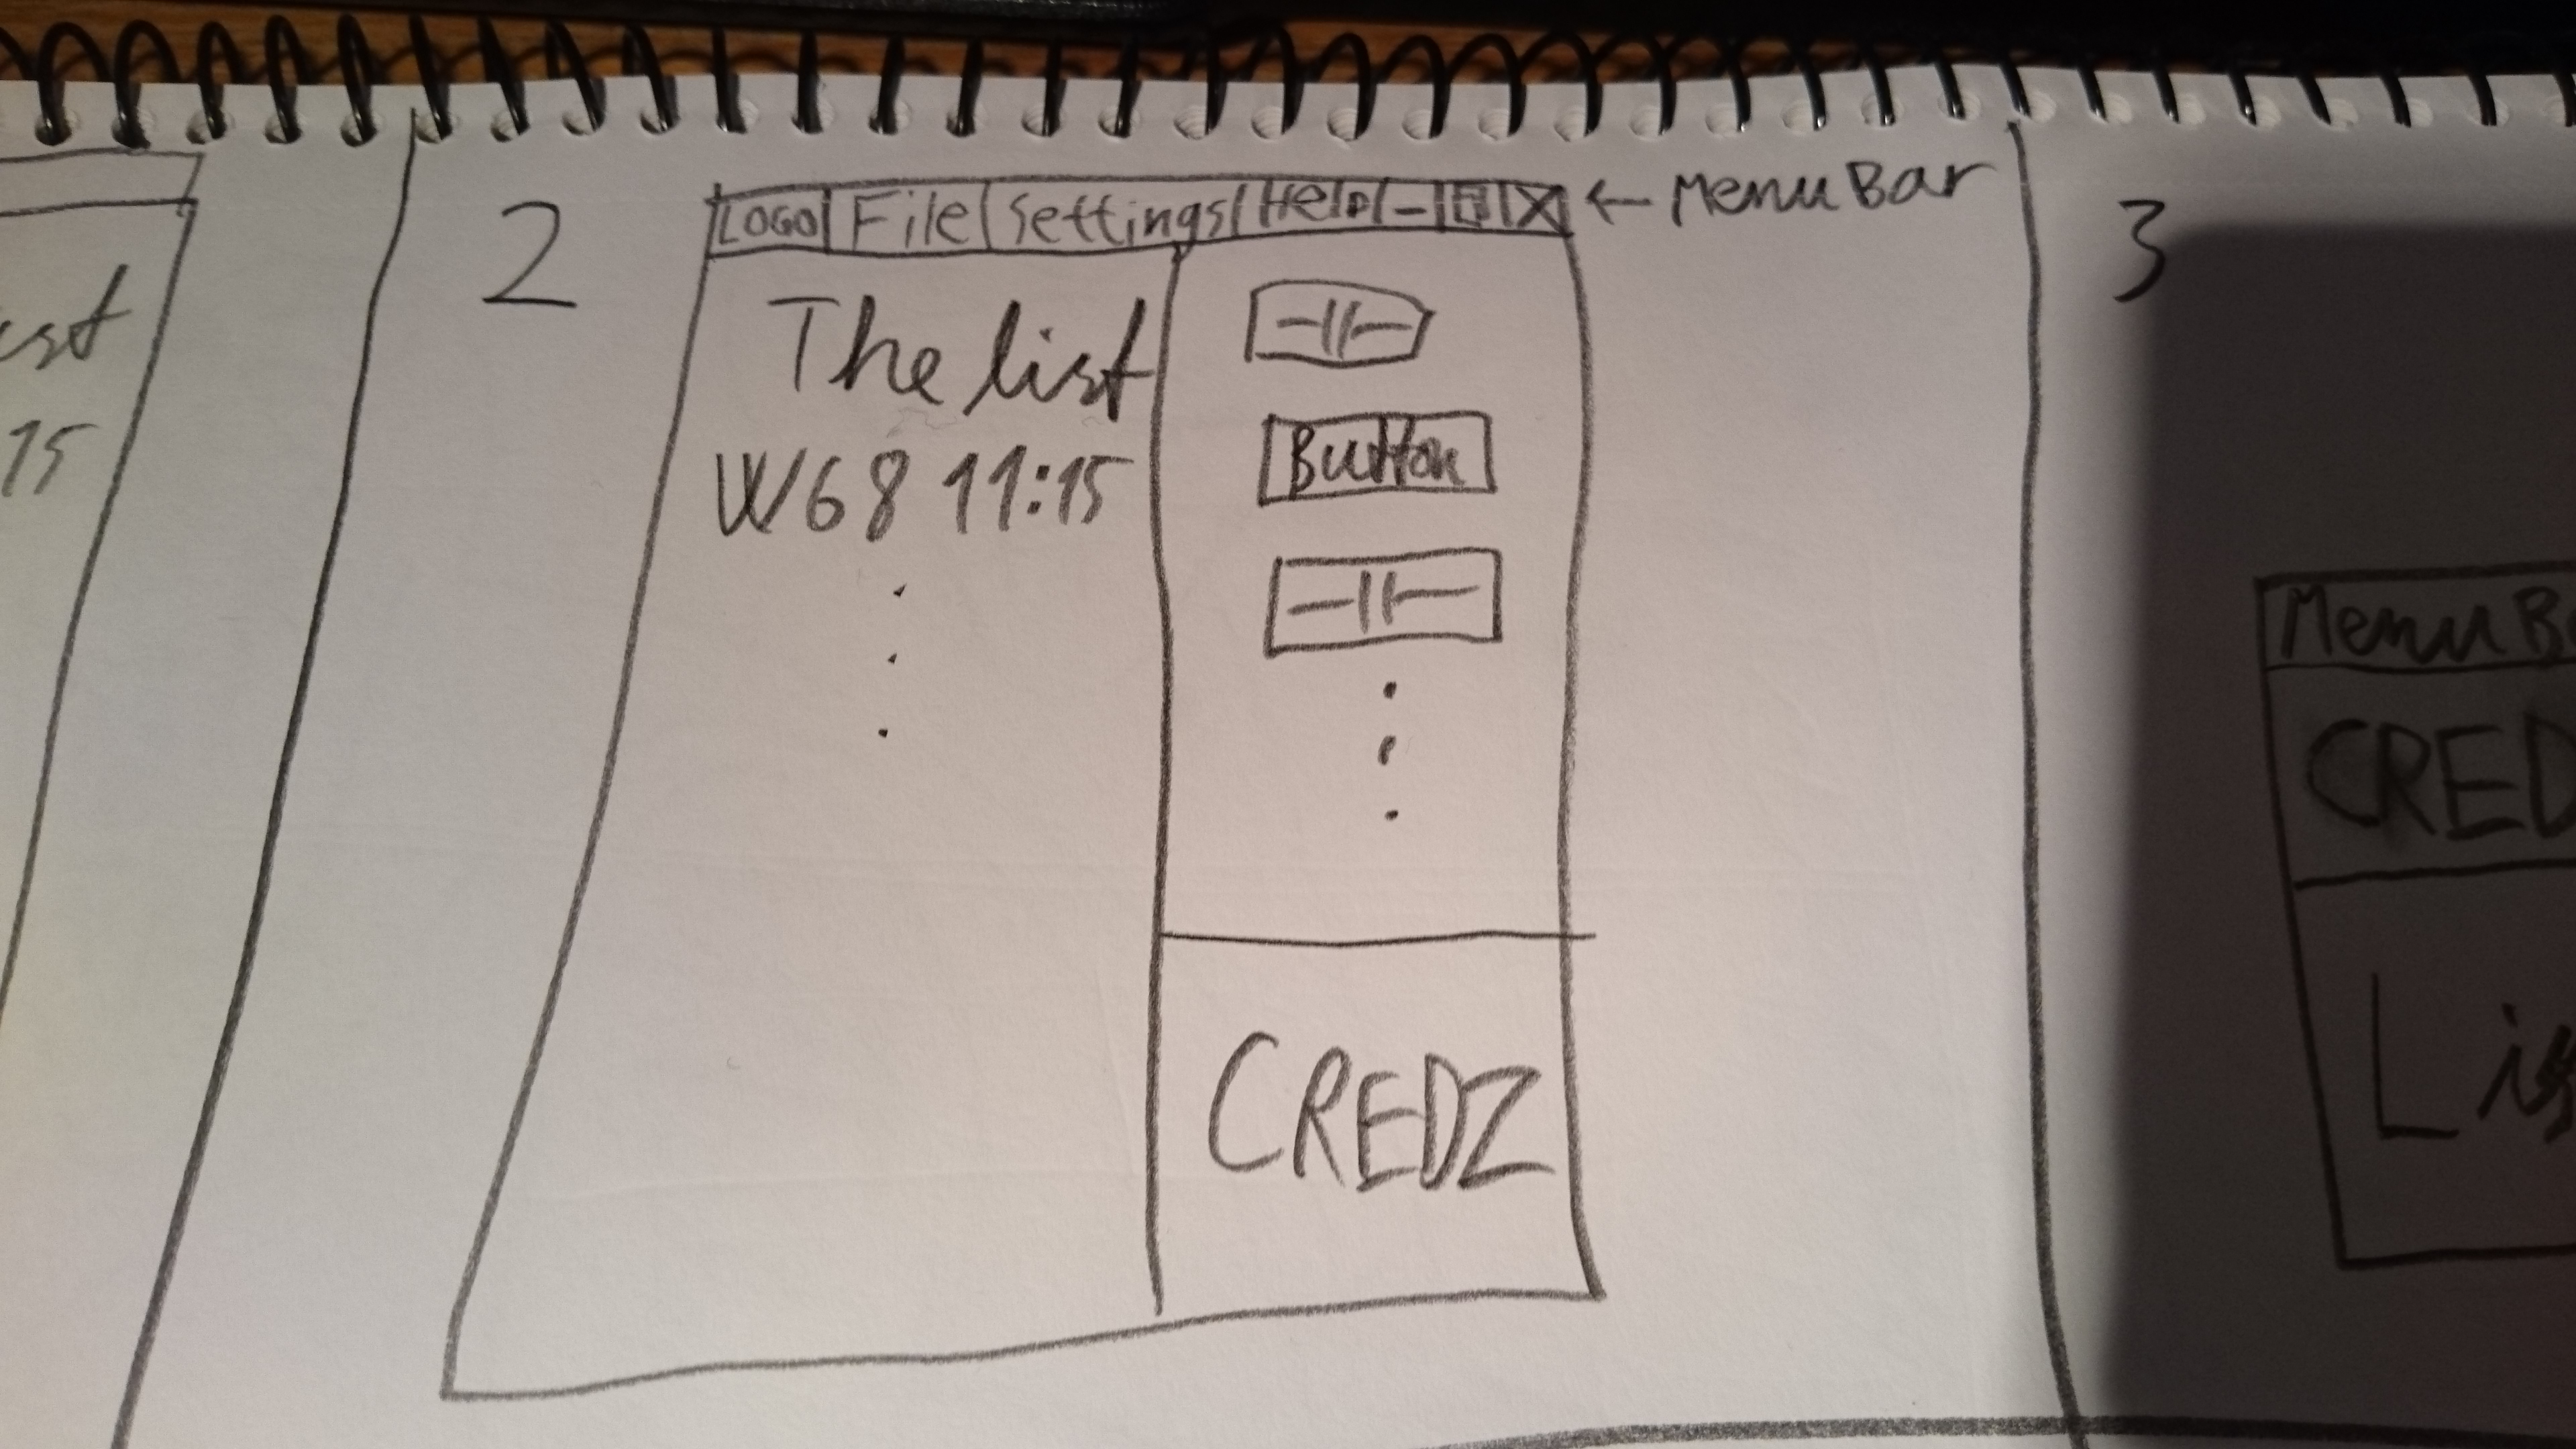 ist
15
2
LOGO File Settings Help - X ← Menu Bar
The list
W68 11:15
Button
-||-
-||-
CREDZ
3
Menu B
CRED
Lis